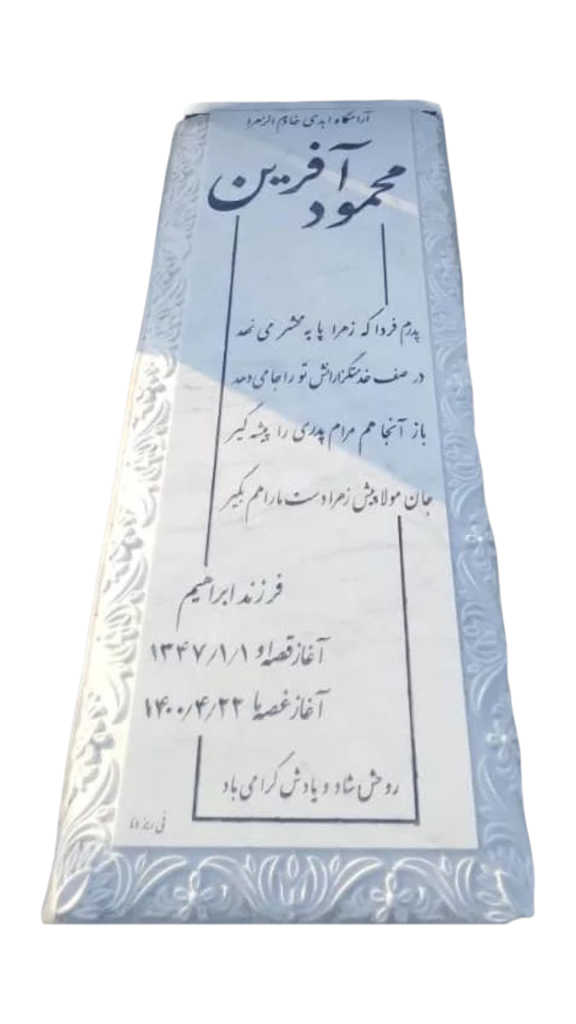 آرامگاه ابدی خادم الزهرا
محمود آفرین
پدرم فردا که زهرا پا به محشر می نهد
در صف خدمتگزارانش تو را جا می دهد
باز آنجا هم مرام پدری را پیشه گیر
جان مولا پیش زهرا دست ما را هم بگیر
فرزند ابراهیم
آغاز قصه او ۱۳۴۷/۱/۱
آغاز غصه ما ۱۴۰۰/۴/۲۲
روحش شاد و یادش گرامی باد